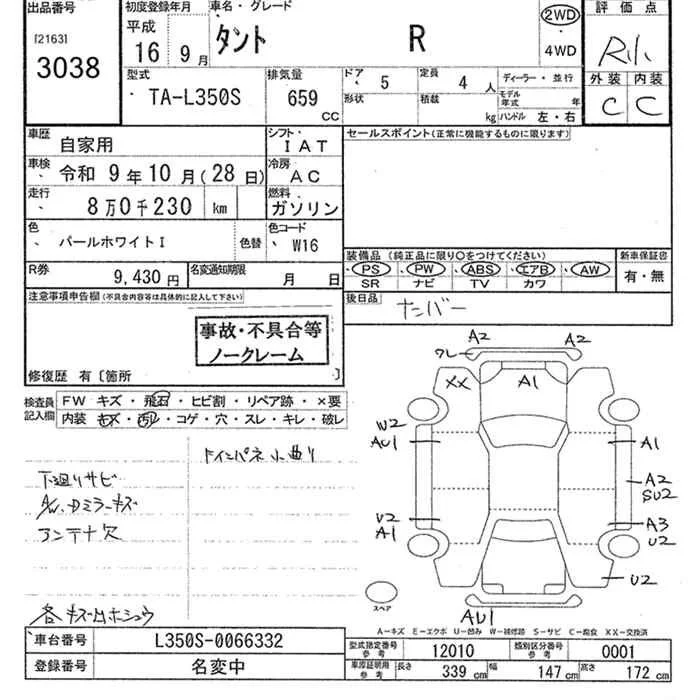 出品番号
[2163]
3038
初度登録年月
平成
16 9月
車名・グレード
タント R
2WD
・
4WD
評価点
R1
外装 内装
C C
型式
TA-L350S
排気量
659 CC
ドア 5
形状
定員 4 人
積載 kg
ディーラー・並行
モデル年式 年
ハンドル 左・右
車歴 自家用
シフト IAT
車検 令和 9年10月(28日)
冷房 AC
走行 8万0千230 km
燃料 ガソリン
色 パールホワイトI 色替
色コード W16
R券 9,430円
名変通知期限 月 日
セールスポイント(正常に機能するものに限ります)
装備品 (純正品に限り○をつけてください)
PS・PW・ABS・エアB・AW
SR ナビ TV カワ
新車保証書
有・無
後日品 ナンバー
注意事項申告欄(不具合内容等は具体的に記入して下さい)
事故・不具合等
ノークレーム
修復歴 有〔箇所 〕
検査員記入欄
FW キズ・飛石・ヒビ割・リペア跡・×要
内装 キズ・汚レ・コゲ・穴・スレ・キレ・破レ
下廻りサビ
A/W・Dミラーキズ
アンテナ欠
各キズ凹ホシュウ
ドインパネ小曲り
A2 A2
ワレ
XX A1
W2
AU1 A1
A2
SU2
V2
A1
A3
U2
U2
スペア
AU1
A―キズ E―エクボ U―凹み W―補修跡 S―サビ C―腐食 XX―交換済
車台番号 L350S-0066332
登録番号 名変中
型式指定番号参考 12010
類別区分番号参考 0001
車庫証明用参考 長さ 339cm 幅 147cm 高さ 172cm